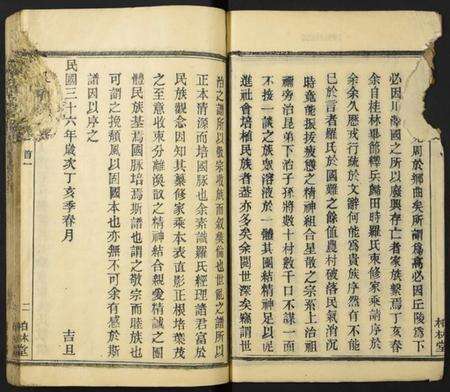 必因川帝國之所以廢興存亡者家族繫焉丁亥春
余自桂林畢節釋兵歸田時羅氏東修家乘請序於
余余久歷戎行疏於文辭何能爲貴族序然有不能
已於言者羅氏於國難之餘值農村破落民氣消沉
時竟能振拔疲憊之精神組合星散之宗系上治祖
禰旁治昆弟下治子孫將數十村數千口不謀一面
不接一談之族眾溶液於一體其團結精神足以
進社會培植民族者蓋亦多矣余閱世深矣竊謂世
治之譜所以敬宗收族而敘矣倫也世亂之譜所以
正本清源而培國脉也余素識羅氏經理諸君富於
民族觀念因知其纂修家乘本表直影正根培葉茂
之至意收束分離渙散之精神結合親愛精誠之團
體民族基焉國脉培焉斯譜也謂之敬宗而睦族也
可謂之挽頹風以固國本也亦無不可余有感於斯
譜因以序之
民國三十六年歲次丁亥季春月
吉旦
首一
二
白林堂